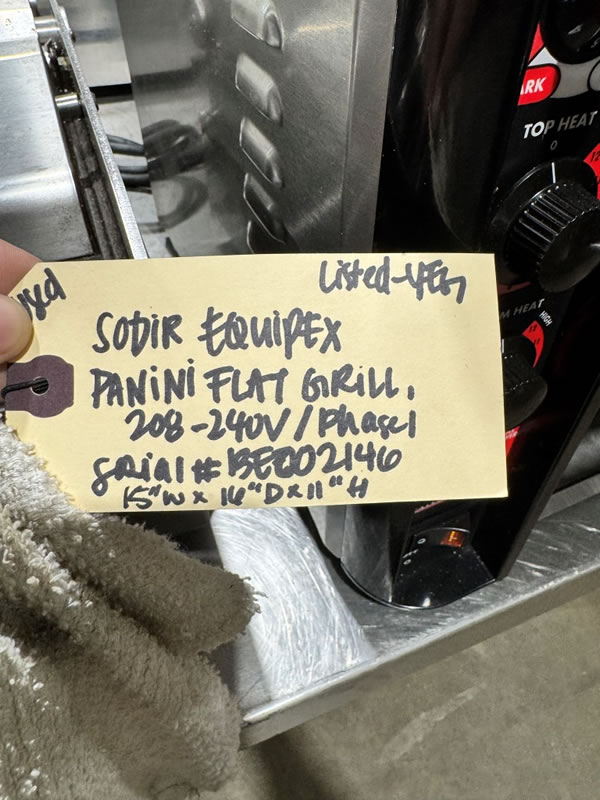 used
Listed-YEM
SODIR EQUIPEX
PANINI FLAT GRILL,
208-240V/Phase1
Serial # BE002146
15"W x 16"D x 11"H
ARK
TOP HEAT
0
M HEAT
HIGH